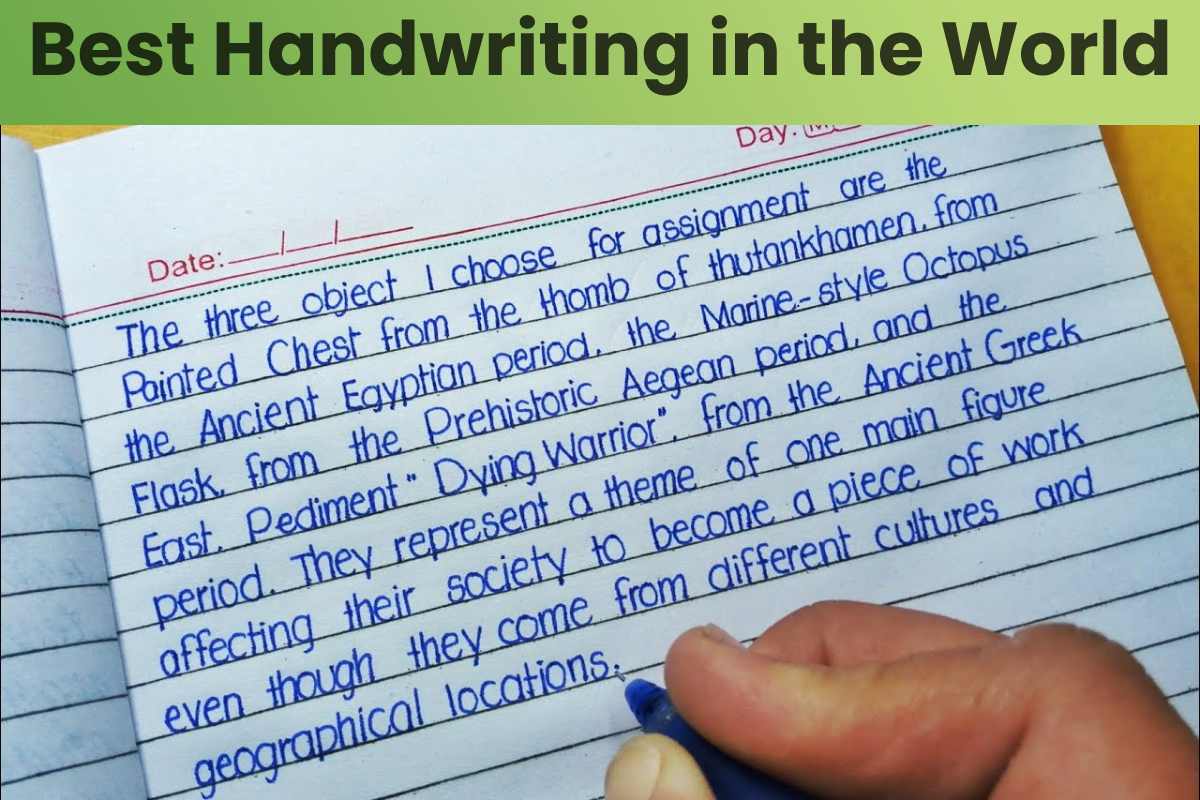 Best Handwriting in the World
Day:
Date:
The three object I choose for assignment are the
Painted Chest from the thomb of thutankhamen, from
the Ancient Egyptian period, the Marine-style Octopus
Flask, from the Prehistoric Aegean period, and the
East. Pediment "Dying Warrior", from the Ancient Greek
period. They represent a theme of one main figure
affecting their society to become a piece of work
even though they come from different cultures and
geographical locations.